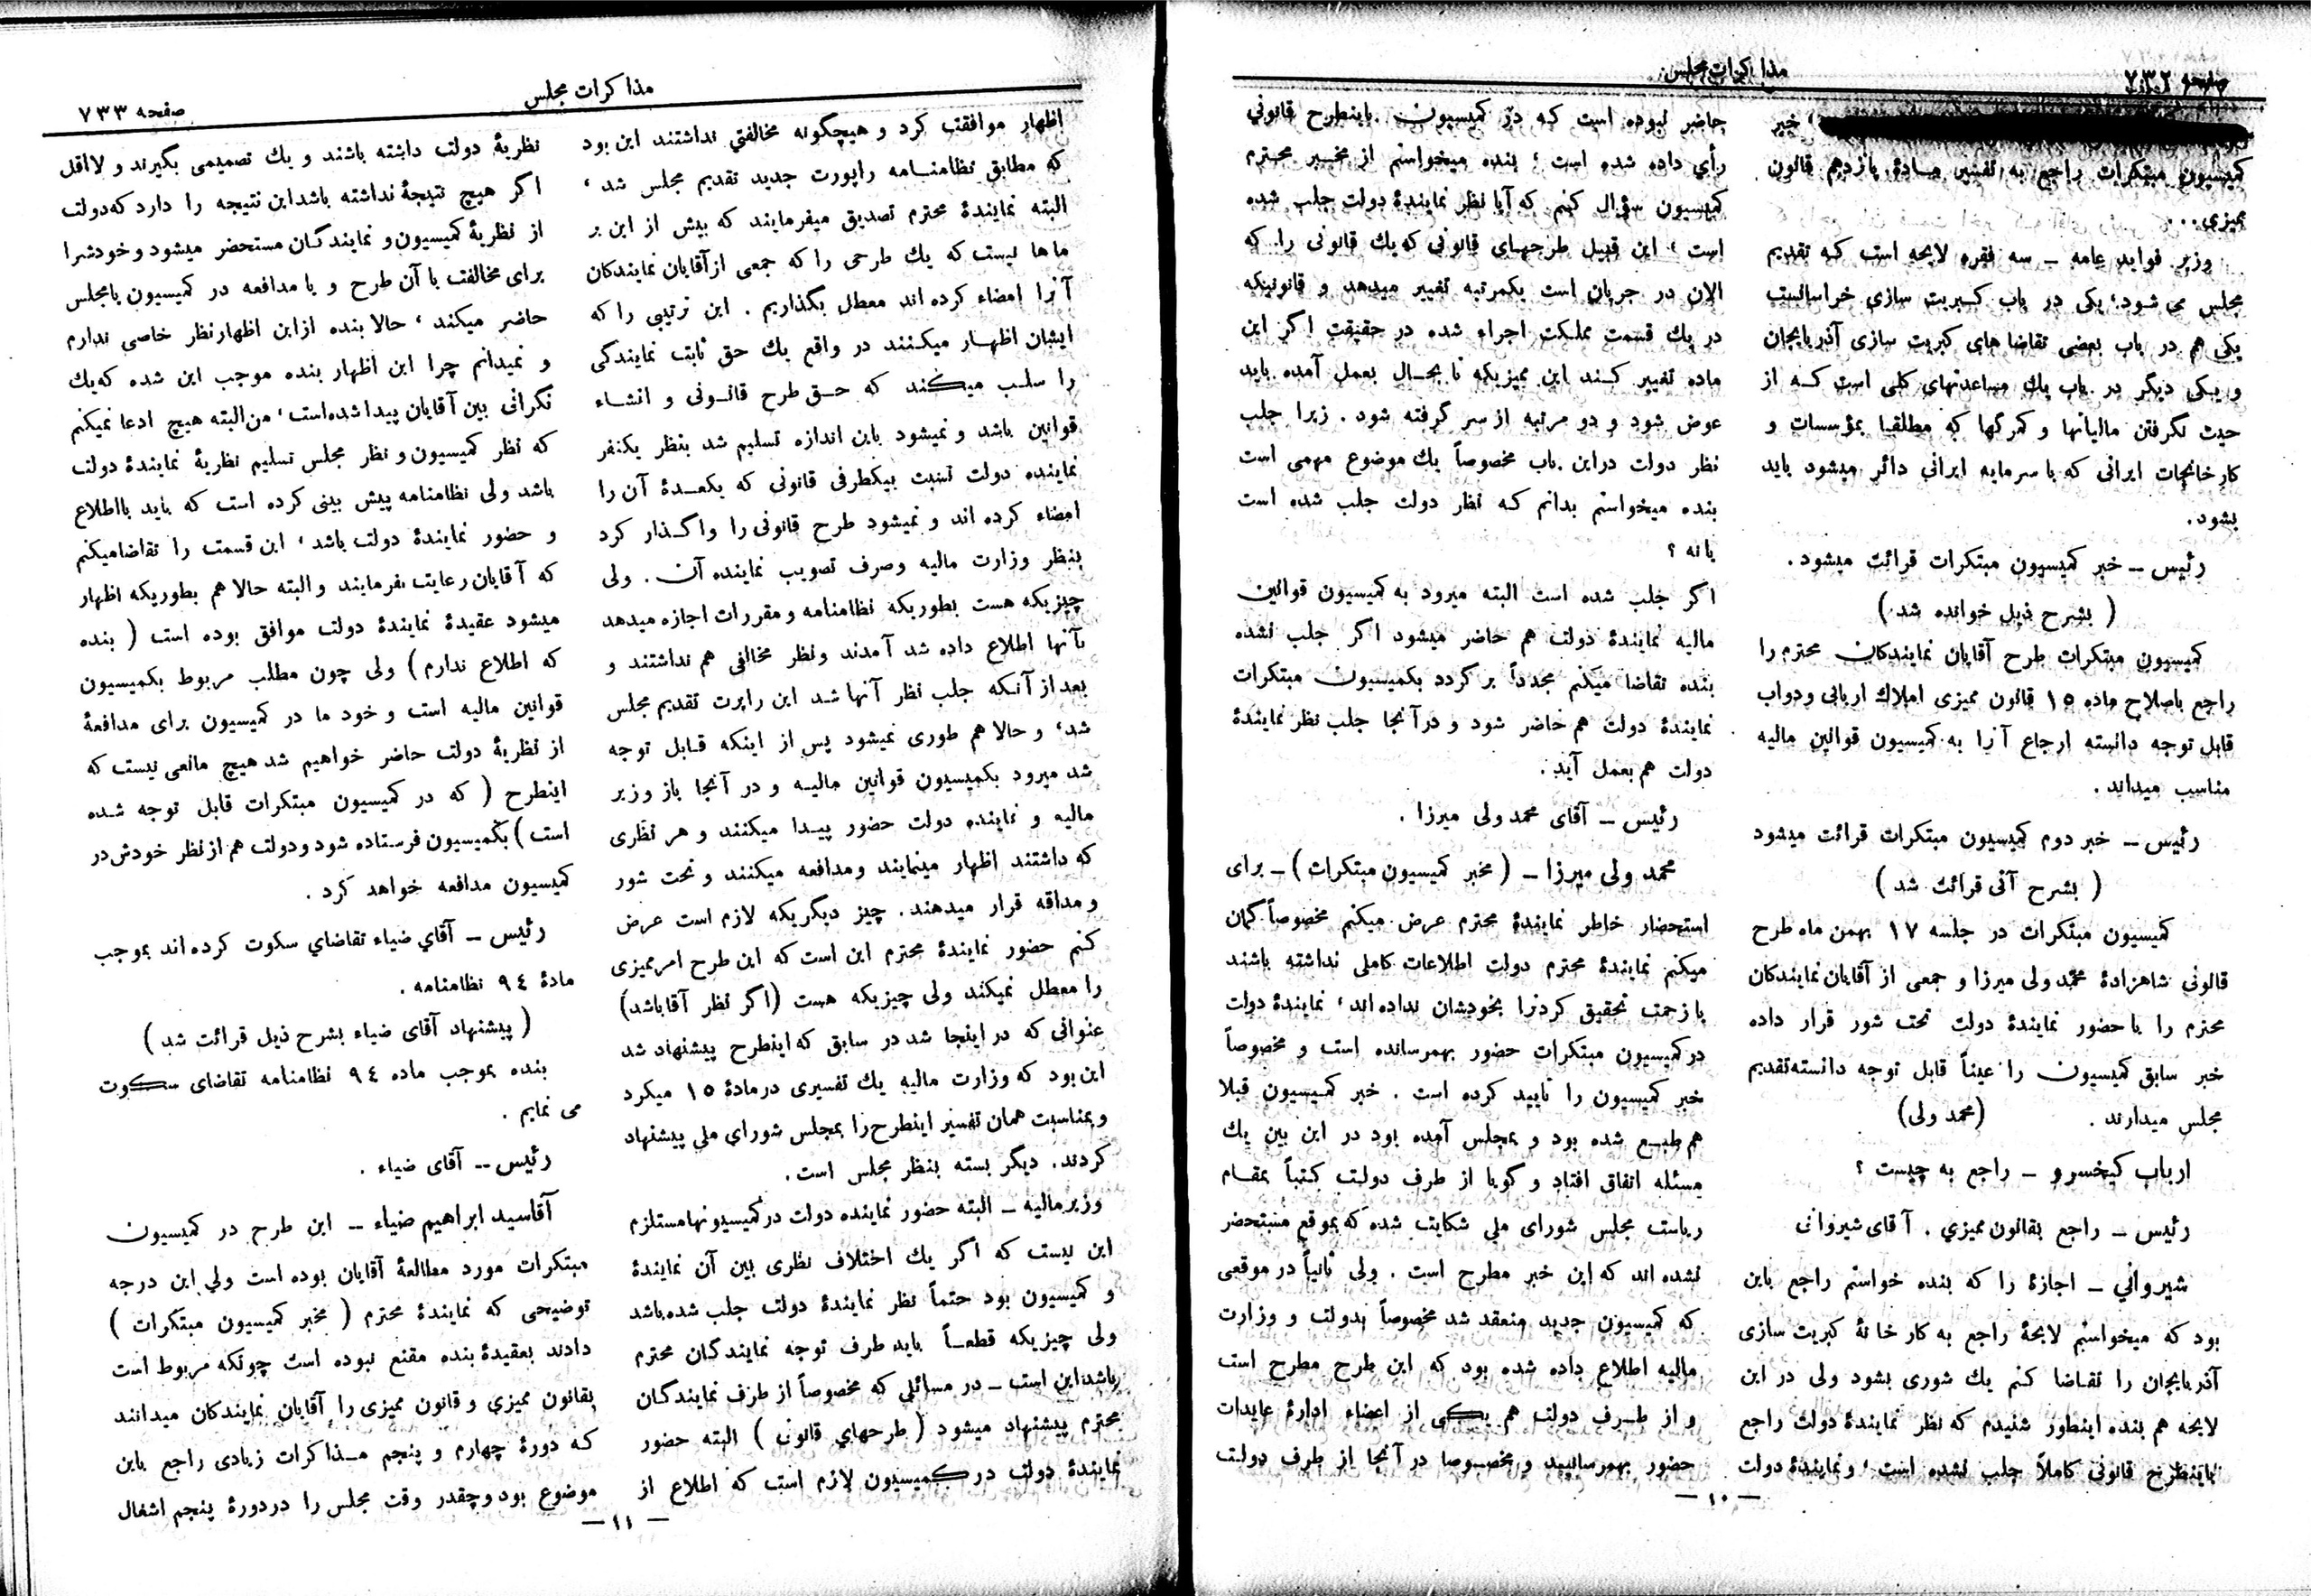 صفحه ۷۳۲
مذاکرات مجلس
خبر
کمیسیون مبتکرات راجع به تفسیر مادۀ پازدهم قانون
ممیزی...
وزیر فواید عامه ــ سه فقره لایحه است که تقدیم
مجلس می شود، یکی در باب کبریت سازی خراسانست
یکی هم در باب بعضی تقاضا های کبریت سازی آذربایجان
و یکی دیگر در باب یك مساعدتهای کلی است که از
حیث نگرفتن مالیاتها و گمرکها که مطلقا بمؤسسات و
کارخانجات ایرانی که با سرمایه ایرانی دائر میشود باید
بشود.
رئیس ــ خبر کمیسیون مبتکرات قرائت میشود.
( بشرح ذیل خوانده شد )
کمیسیون مبتکرات طرح آقایان نمایندکان محترم را
راجع باصلاح ماده ۱۵ قانون ممیزی املاك اربابی ودواب
قابل توجه دانسته ارجاع آنرا به کمیسیون قوانین مالیه
مناسب میداند.
رئیس ــ خبر دوم کمیسیون مبتکرات قرائت میشود
( بشرح آتی قرائت شد )
کمیسیون مبتکرات در جلسه ۱۷ بهمن ماه طرح
قانونی شاهزادۀ محمد ولی میرزا و جمعی از آقایان نمایندکان
محترم را با حضور نمایندۀ دولت تحت شور قرار داده
خبر سابق کمیسیون را عیناً قابل توجه دانسته تقدیم
مجلس میدارند. (محمد ولی)
ارباب کیخسرو ــ راجع به چیست ؟
رئیس ــ راجع بقانون ممیزی. آقای شیروانی
شیرواني ــ اجازۀ را که بنده خواستم راجع باین
بود که میخواستم لایحۀ راجع به کار خانۀ کبریت سازی
آذربایجان را تقاضا کنم یك شوری بشود ولی در این
لایحه هم بنده اینطور شنیدم که نظر نمایندۀ دولت راجع
باینطرح قانونی کاملاً جلب نشده است، و نمایندۀ دولت
حاضر نبوده است که در کمیسیون باینطرح قانوني
رأي داده شده است، بنده میخواستم از مخبر محترم
کمیسیون سؤال کنم که آیا نظر نمایندۀ دولت جلب شده
است، این قبیل طرحهای قانونی که یك قانونی را که
الان در جریان است یکمرتبه تغییر میدهد و قانونیکه
در یك قسمت مملکت اجراء شده در حقیقت اگر این
ماده تغییر کند این ممیزیکه تا بحال بعمل آمده باید
عوض شود و دو مرتبه از سر گرفته شود. زیرا جلب
نظر دولت دراین باب مخصوصاً یك موضوع مهمی است
بنده میخواستم بدانم که نظر دولت جلب شده است
یا نه ؟
اگر جلب شده است البته میرود به کمیسیون قوانین
مالیه نمایندۀ دولت هم حاضر میشود اگر جلب نشده
بنده تقاضا میکنم مجدداً بر گردد بکمیسیون مبتکرات
نمایندۀ دولت هم حاضر شود و درآنجا جلب نظر نمایندۀ
دولت هم بعمل آید.
رئیس ــ آقای محمد ولی میرزا.
محمد ولی میرزا ــ (مخبر کمیسیون مبتکرات) ــ برای
استحضار خاطر نمایندۀ محترم عرض میکنم مخصوصاً گمان
میکنم نمایندۀ محترم دولت اطلاعات کاملی نداشته باشند
یا زحمت تحقیق کردنرا بخودشان نداده اند، نمایندۀ دولت
در کمیسیون مبتکرات حضور بهمرسانده است و مخصوصاً
خبر کمیسیون را تایید کرده است. خبر کمیسیون قبلا
هم طبع شده بود و بمجلس آمده بود در این بین یك
مسئله اتفاق افتاد و گویا از طرف دولت کتباً بمقام
ریاست مجلس شورای ملي شکایت شده که بموقع مستحضر
نشده اند که این خبر مطرح است. ولی ثانیاً در موقعی
که کمیسیون جدید منعقد شد مخصوصاً بدولت و وزارت
مالیه اطلاع داده شده بود که این طرح مطرح است
و از طرف دولت هم یکی از اعضاء ادارۀ عایدات
حضور بهمرسانید و مخصوصا در آنجا از طرف دولت
— ۱۰ —
مذاکرات مجلس
صفحه ۷۳۳
اظهار موافقت کرد و هیچگونه مخالفتي نداشتند این بود
که مطابق نظامنامه راپورت جدید تقدیم مجلس شد،
البته نمایندۀ محترم تصدیق میفرمایند که بیش از این بر
ماها نیست که یك طرحی را که جمعی از آقایان نمایندکان
آنرا امضاء کرده اند معطل بگذاریم. این ترتیبی را که
ایشان اظهار میکنند در واقع یك حق ثابت نمایندگی
را سلب میکند که حق طرح قانونی و انشاء
قوانین باشد و نمیشود باین اندازه تسلیم شد بنظر یکنفر
نماینده دولت نسبت بیکطرفی قانونی که یکعدۀ آن را
امضاء کرده اند و نمیشود طرح قانونی را واگذار کرد
بنظر وزارت مالیه وصرف تصویب نماینده آن. ولی
چیزیکه هست بطوریکه نظامنامه و مقررات اجازه میدهد
بآنها اطلاع داده شد آمدند ونظر مخالفی هم نداشتند و
بعد از آنکه جلب نظر آنها شد این راپرت تقدیم مجلس
شد، و حالا هم طوری نمیشود پس از اینکه قابل توجه
شد میرود بکمیسیون قوانین مالیه و در آنجا باز وزیر
مالیه و نماینده دولت حضور پیدا میکنند و هر نظری
که داشتند اظهار مینمایند ومدافعه میکنند و تحت شور
و مداقه قرار میدهند. چیز دیگریکه لازم است عرض
کنم حضور نمایندۀ محترم این است که این طرح امر ممیزی
را معطل نمیکند ولی چیزیکه هست (اگر نظر آقا باشد)
عنوانی که در اینجا شد در سابق که اینطرح پیشنهاد شد
این بود که وزارت مالیه یك تفسیری در مادۀ ۱۵ میکرد
و بمناسبت همان تفسیر اینطرح را بمجلس شورای ملي پیشنهاد
کردند. دیگر بسته بنظر مجلس است.
وزیر مالیه ــ البته حضور نماینده دولت در کمیسیونها مستلزم
این نیست که اگر یك اختلاف نظری بین آن نمایندۀ
و کمیسیون بود حتماً نظر نمایندۀ دولت جلب شده باشد
ولی چیزیکه قطعاً باید طرف توجه نمایندگان محترم
باشد این است ــ در مسائلی که مخصوصاً از طرف نمایندگان
محترم پیشنهاد میشود (طرحهاي قانونی) البته حضور
نمایندۀ دولت در کمیسیون لازم است که اطلاع از
نظریۀ دولت داشته باشند و یك تصمیمی بگیرند و لااقل
اگر هیچ نتیجۀ نداشته باشد این نتیجه را دارد که دولت
از نظریۀ کمیسیون و نمایندگان مستحضر میشود و خودشرا
برای مخالفت با آن طرح و یا مدافعه در کمیسیون یا مجلس
حاضر میکند، حالا بنده از این اظهار نظر خاصی ندارم
و نمیدانم چرا این اظهار بنده موجب این شده که یك
نگرانی بین آقایان پیدا شده است، من البته هیچ ادعا نمیکنم
که نظر کمیسیون و نظر مجلس تسلیم نظریۀ نمایندۀ دولت
باشد ولی نظامنامه پیش بینی کرده است که باید بااطلاع
و حضور نمایندۀ دولت باشد، این قسمت را تقاضا میکنم
که آقایان رعایت بفرمایند و البته حالا هم بطوریکه اظهار
میشود عقیدۀ نمایندۀ دولت موافق بوده است (بنده
که اطلاع ندارم) ولی چون مطلب مربوط بکمیسیون
قوانین مالیه است و خود ما در کمیسیون برای مدافعۀ
از نظریۀ دولت حاضر خواهیم شد هیچ مانعی نیست که
اینطرح (که در کمیسیون مبتکرات قابل توجه شده
است) بکمیسیون فرستاده شود ودولت هم از نظر خودش در
کمیسیون مدافعه خواهد کرد.
رئیس ــ آقاي ضیاء تقاضاي سکوت کرده اند بموجب
مادۀ ۹٤ نظامنامه.
( پیشنهاد آقای ضیاء بشرح ذیل قرائت شد )
بنده بموجب ماده ۹٤ نظامنامه تقاضای سکوت
می نمایم.
رئیس ــ آقای ضیاء.
آقاسید ابراهیم ضیاء ــ این طرح در کمیسیون
مبتکرات مورد مطالعۀ آقایان بوده است ولي این درجه
توضیحی که نمایندۀ محترم (مخبر کمیسیون مبتکرات)
دادند بعقیدۀ بنده مقنع نبوده است چونکه مربوط است
بقانون ممیزي و قانون ممیزی را آقایان نمایندکان میدانند
که دورۀ چهارم و پنجم مذاکرات زیادی راجع باین
موضوع بود و چقدر وقت مجلس را در دورۀ پنجم اشغال
— ۱۱ —